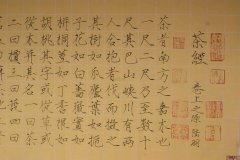 茶經
卷上 唐 陸羽
茶者南方之嘉木也
一尺二尺乃至數十
尺其巴山峽川有兩
人合抱者伐而掇之
其樹如瓜蘆葉如梔
花如白薔薇實如
栟櫚莖如丁香根如
胡桃其字或從草或從
木并其名一曰茶
二曰檟三曰蔎四曰